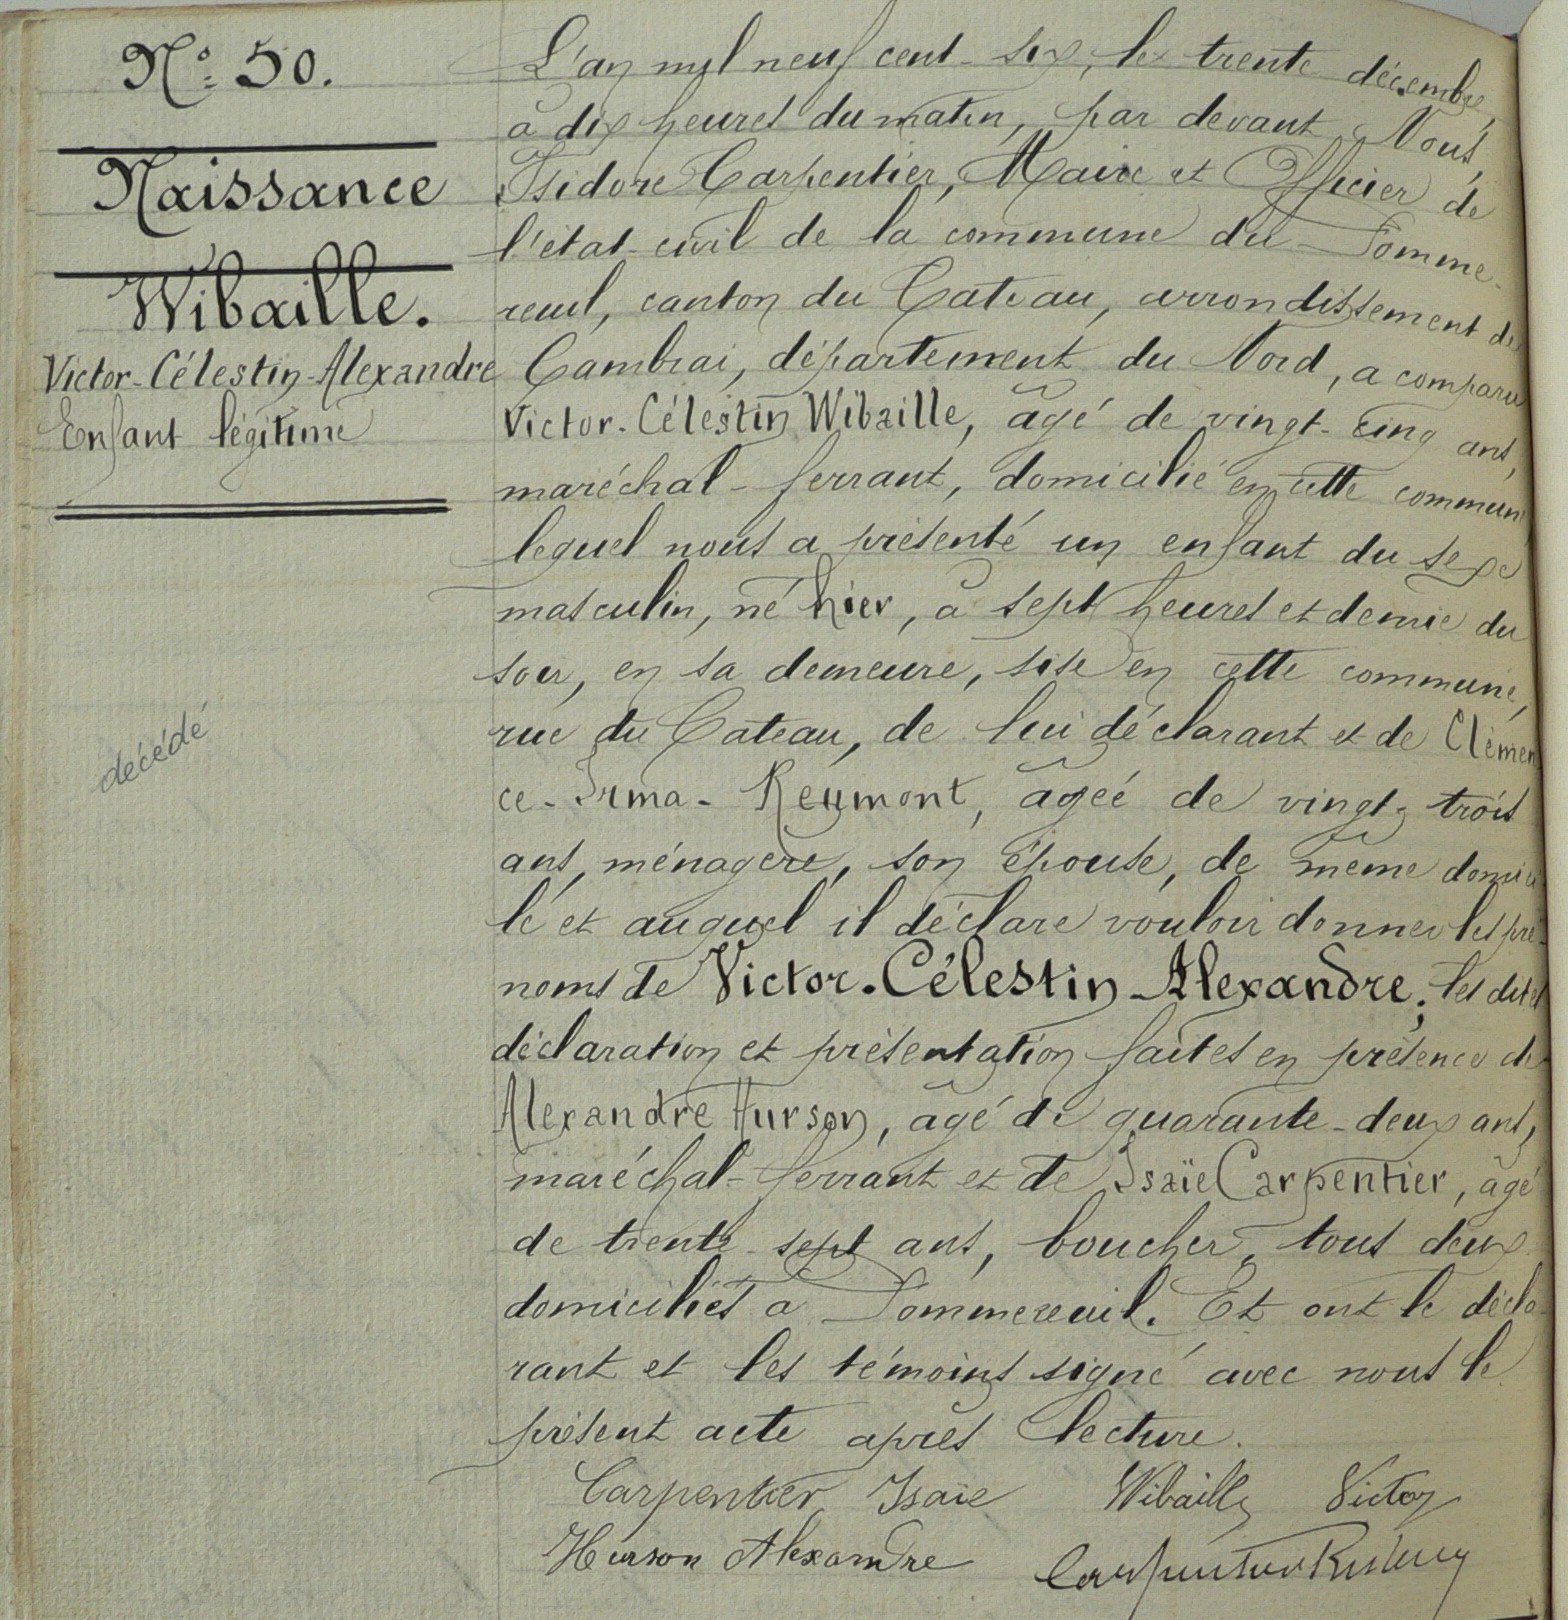 N° 50.
Naissance
Wibaille.
Victor-Célestin-Alexandre
Enfant légitime
décédé
L'an mil neuf cent-six, le trente décembre,
à dix heures du matin, par devant Nous,
Isidore Carpentier, Maire et Officier de
l'état-civil de la commune du Somme-
reuil, canton du Cateau, arrondissement de
Cambrai, département du Nord, a comparu
Victor-Célestin Wibaille, âgé de vingt-cinq ans,
maréchal-ferrant, domicilié en cette commune,
lequel nous a présenté un enfant du sexe
masculin, né hier, à sept heures et demie du
soir, en sa demeure, sise en cette commune,
rue du Cateau, de lui déclarant et de Clémen
ce-Irma-Reumont, âgée de vingt-trois
ans, ménagère, son épouse, de même domici
le et auquel il déclare vouloir donner les pré-
noms de Victor-Célestin-Alexandre; les dites
déclaration et présentation faites en présence de
Alexandre Hurson, âgé de quarante-deux ans,
maréchal-ferrant et de Isaïe Carpentier, âgé
de trente-sept ans, boucher, tous deux
domiciliés à Sommereuil. Et ont le décla-
rant et les témoins signé avec nous le
présent acte après lecture.
Carpentier Isaïe Wibaille Victor
Hurson Alexandre Carpentier